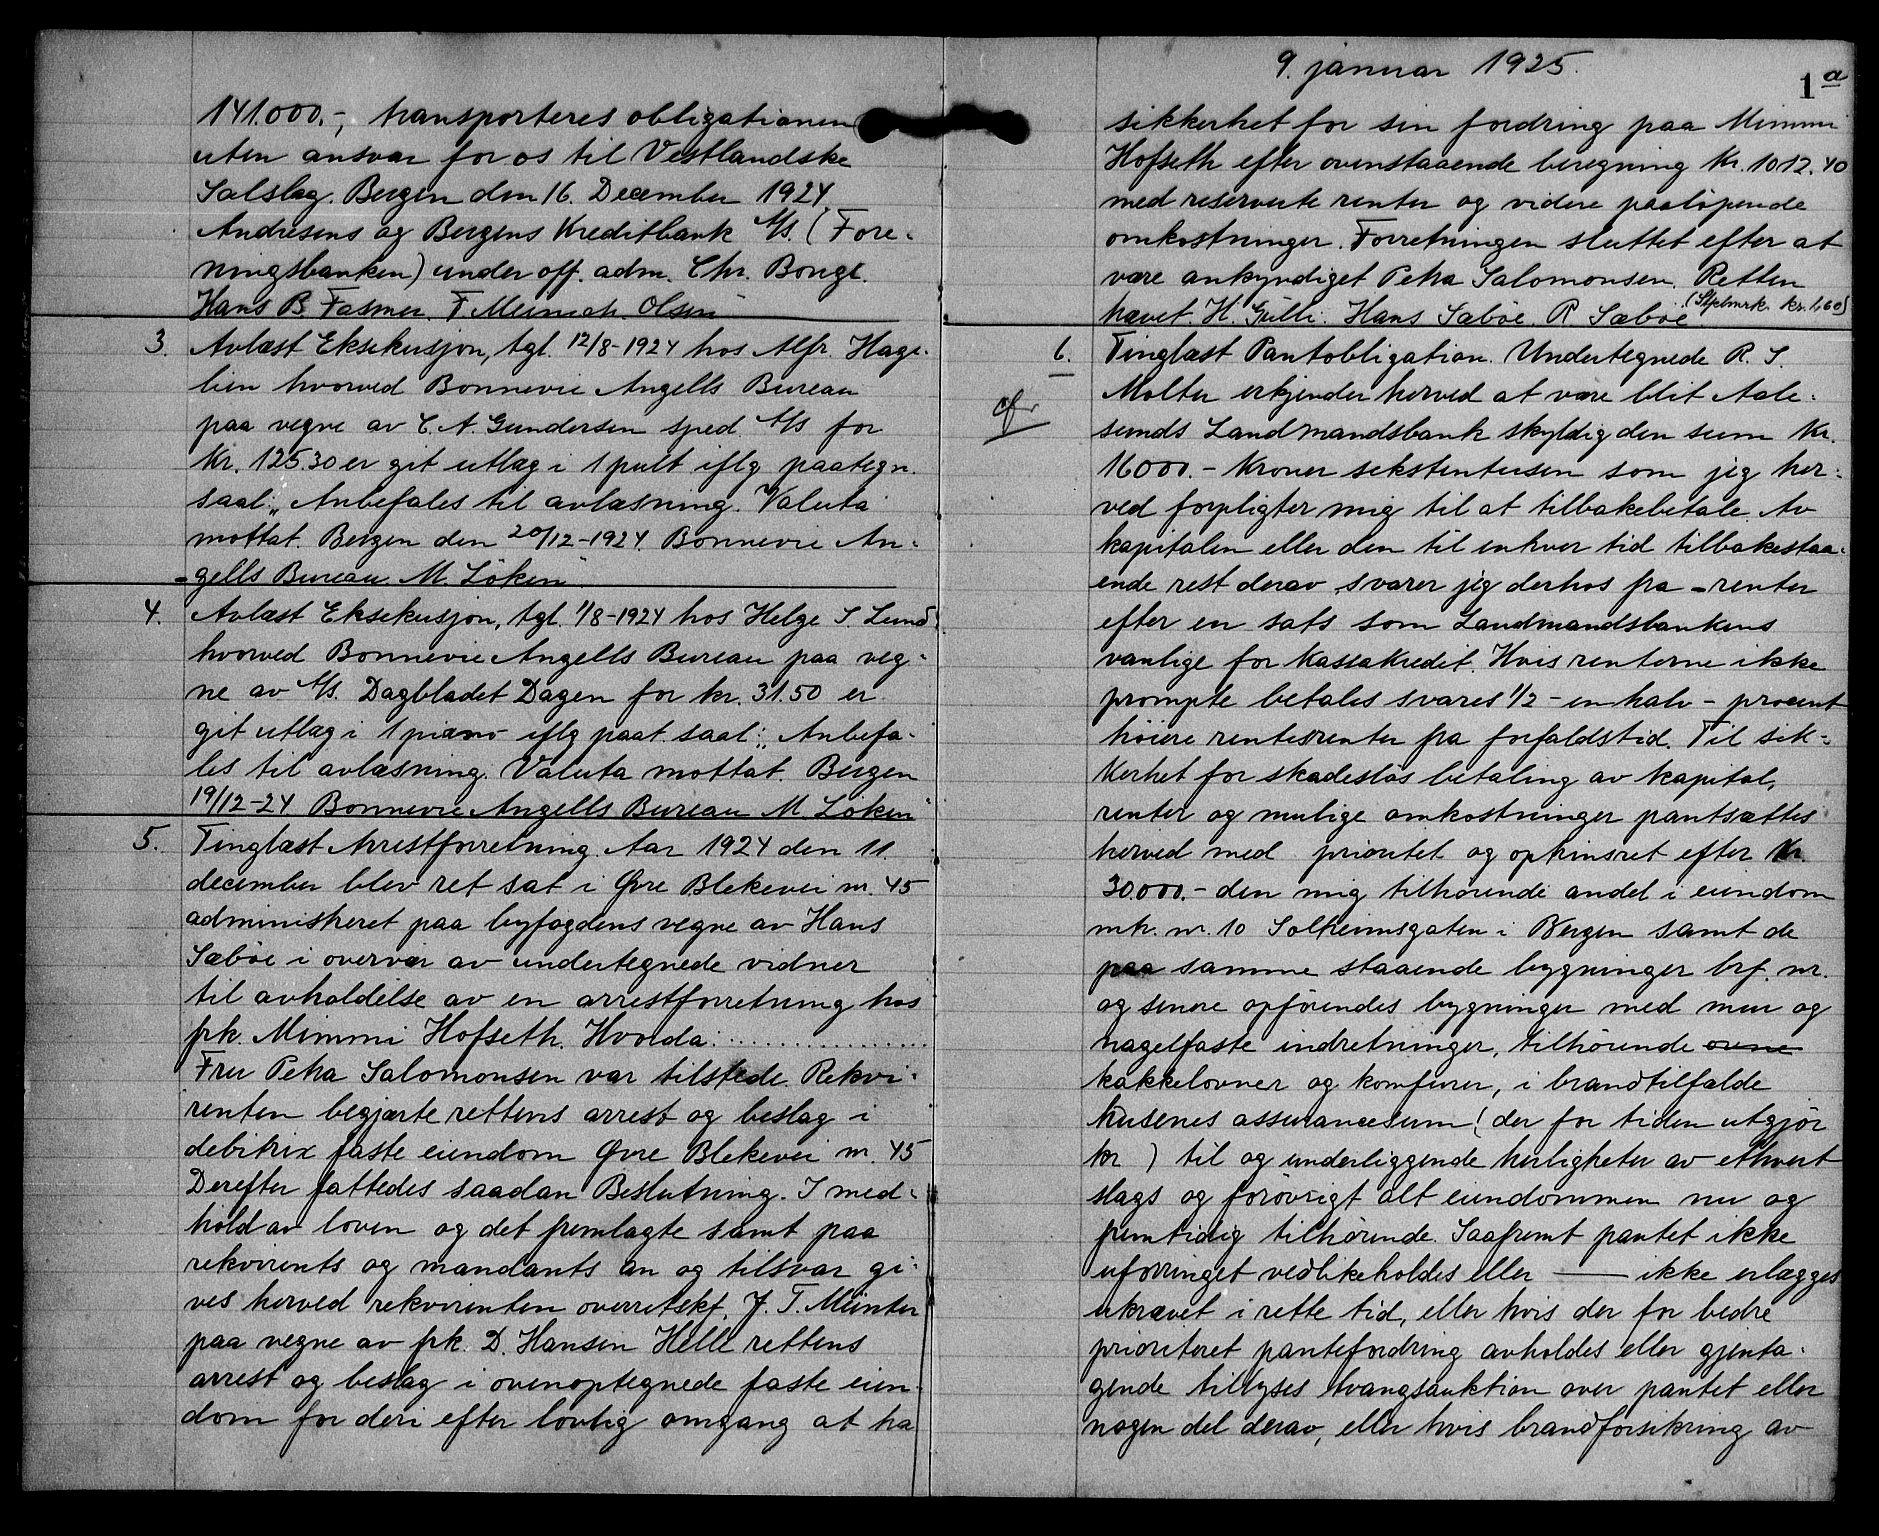 141.000.-, transporteres obligationen
uten ansvar for os til Vestlandske
Salslag. Bergen den 16. December 1924.
Andresens og Bergens Kreditbank A/S. (Fore-
ningsbanken) under off. adm. Chr. Bonge.
Hans B Fasmer. F. Meinich. Olsen
3. Avlæst Eksekusjon, tgl. 12/8-1924 hos Alfr. Hage-
lien hvorved Bonnevie Angells Bureau
paa vegne av C. A. Gundersen sped. A/S for
Kr. 125.30 er git utlæg i 1 pult iflg paategn.
saal: „Anbefales til avlæsning. Valuta
mottat. Bergen den 20/12-1924. Bonnevie An-
gells Bureau M. Löken".
4. Avlæst Eksekusjon, tgl. 1/8-1924 hos Helge S Lund
hvorved Bonnevie Angells Bureau paa veg-
ne av A/S. Dagbladet Dagen for kr. 31.50 er
git utlæg i 1 piano iflg paat. saal: „Anbefa-
les til avlæsning. Valuta mottat. Bergen
19/12-24 Bonnevie Angells Bureau M. Löken"
5. Tinglæst Arrestforretning. Aar 1924 den 11.
december blev ret sat i Øvre Blekevei nr. 45
administreret paa byfogdens vegne av Hans
Sæböe i overvær av undertegnede vidner
til avholdelse av en arrestforretning hos
frk. Mimmi Hofseth. Hvorda: ..................
Fru Petra Salomonsen var tilstede. Rekvi-
renten begjærte rettens arrest og beslag i
debitrix faste eiendom Øvre Blekevei nr. 45
Derefter fattedes saadan Beslutning. I med-
hold av loven og det fremlagte samt paa
rekvirents og mandants an og tilsvar gi-
ves herved rekvirenten overretskf. J. T. Meinter
paa vegne av frk. D. Hansen Helle rettens
arrest og beslag i ovenoptegnede faste eien-
dom for deri efter lovlig omgang at ha
9. januar 1925.
1a
sikkerhet for sin fordring paa Mimmi
Hofseth efter ovenstaaende beregning Kr. 1012.40
med reserverte renter og videre paalöpende
omkostninger. Forretningen sluttet efter at
være ankyndiget Petra Salomonsen. Retten
hævet. H. Gulli. Hans Sæböe. R Sæböe. (Stplmrk. kr. 1,60)
6. Tinglæst Pantobligation. Undertegnede R. S.
Molter erkjender herved at være blit Aale-
cfr.
sunds Landmandsbank skyldig den sum Kr.
16000.- Kroner sekstentusen som jeg her-
ved forpligter mig til at tilbakebetale. Av
kapitalen eller den til enhver tid tilbakestaa-
ende rest derav svarer jeg derhos fra - renter
efter en sats som Landmandsbankens
vanlige for Kassakredit. Hvis renterne ikke
prompte betales svares 1/2 - en halv - procent
höiere rentesrenter fra forfaldstid. Til sik-
kerhet for skadeslös betaling av kapital,
renter og mulige omkostninger pantsættes
herved med prioritet og optrinsret efter Kr.
30.000.- den mig tilhörende andel i eiendom
mtr. nr. 10 Solheimsgaten i Bergen samt de
paa samme staaende bygninger brf. nr.
og senere opförendes bygninger med mur og
nagelfaste indretninger, tilhörende ovne
kakkelovner og komfurer, i brandtilfælde
husenes assurancesum (der for tiden utgjör
kr ) til og underliggende herligheter av ethvert
slags og forövrigt alt eiendommen nu og
fremtidig tilhörende. Saafremt pantet ikke
uforringet vedlikeholdes eller —— ikke erlægges
ukrævet i rette tid, eller hvis der for bedre
prioriteret pantefordring avholdes eller gjenta-
gende tillyses tvangsauktion over pantet eller
nogen del derav, eller hvis brandforsikring av